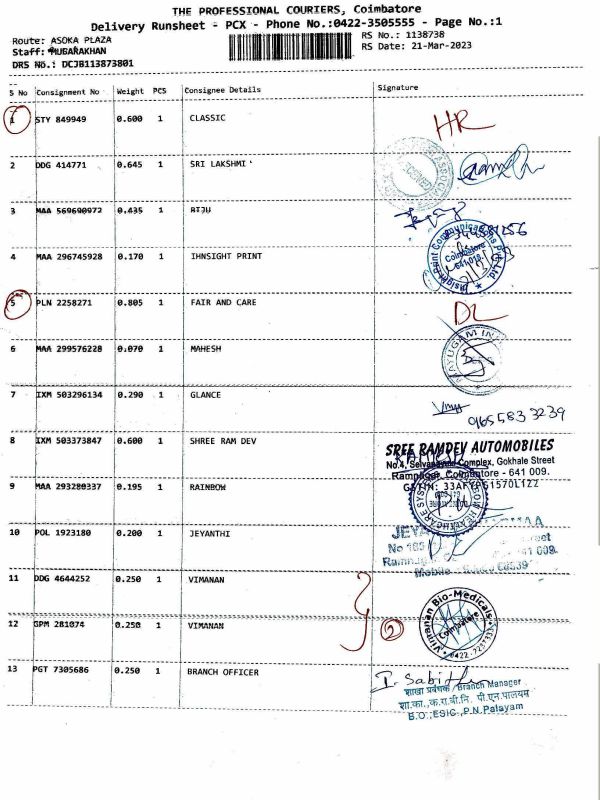 THE PROFESSIONAL COURIERS, Coimbatore
Delivery Runsheet - PCX - Phone No.:0422-3505555 - Page No.:1
Route: ASOKA PLAZA
RS No.: 1138738
Staff: MUBARAKHAN
RS Date: 21-Mar-2023
DRS No.: DCJB113873801
S No Consignment No Weight PCS Consignee Details Signature
1 STY 849949 0.600 1 CLASSIC HR
2 DDG 414771 0.645 1 SRI LAKSHMI
3 MAA 569600972 0.435 1 BIJU
4 MAA 296745928 0.170 1 IHNSIGHT PRINT
Coimbatore
641 018
5 PLN 2258271 0.805 1 FAIR AND CARE DL
6 MAA 299576228 0.070 1 MAHESH
7 IXM 503296134 0.290 1 GLANCE
9165583 3239
8 IXM 503373847 0.600 1 SHREE RAM DEV
SREE RAMDEV AUTOMOBILES
Complex, Gokhale Street
Coimbatore - 641 009.
9 MAA 293280337 0.195 1 RAINBOW
10 POL 1923180 0.200 1 JEYANTHI
11 DDG 4644252 0.250 1 VIMANAN
12 GPM 281074 0.250 1 VIMANAN 2
Vimanan Bio-Medicals
Coimbatore
13 PGT 7305686 0.250 1 BRANCH OFFICER
I. Sabitha
शाखा प्रबंधक / Branch Manager
शा.का.,क.रा.बी.नि. पी.एन.पालयम
B.O.,ESIC.,P.N.Palayam